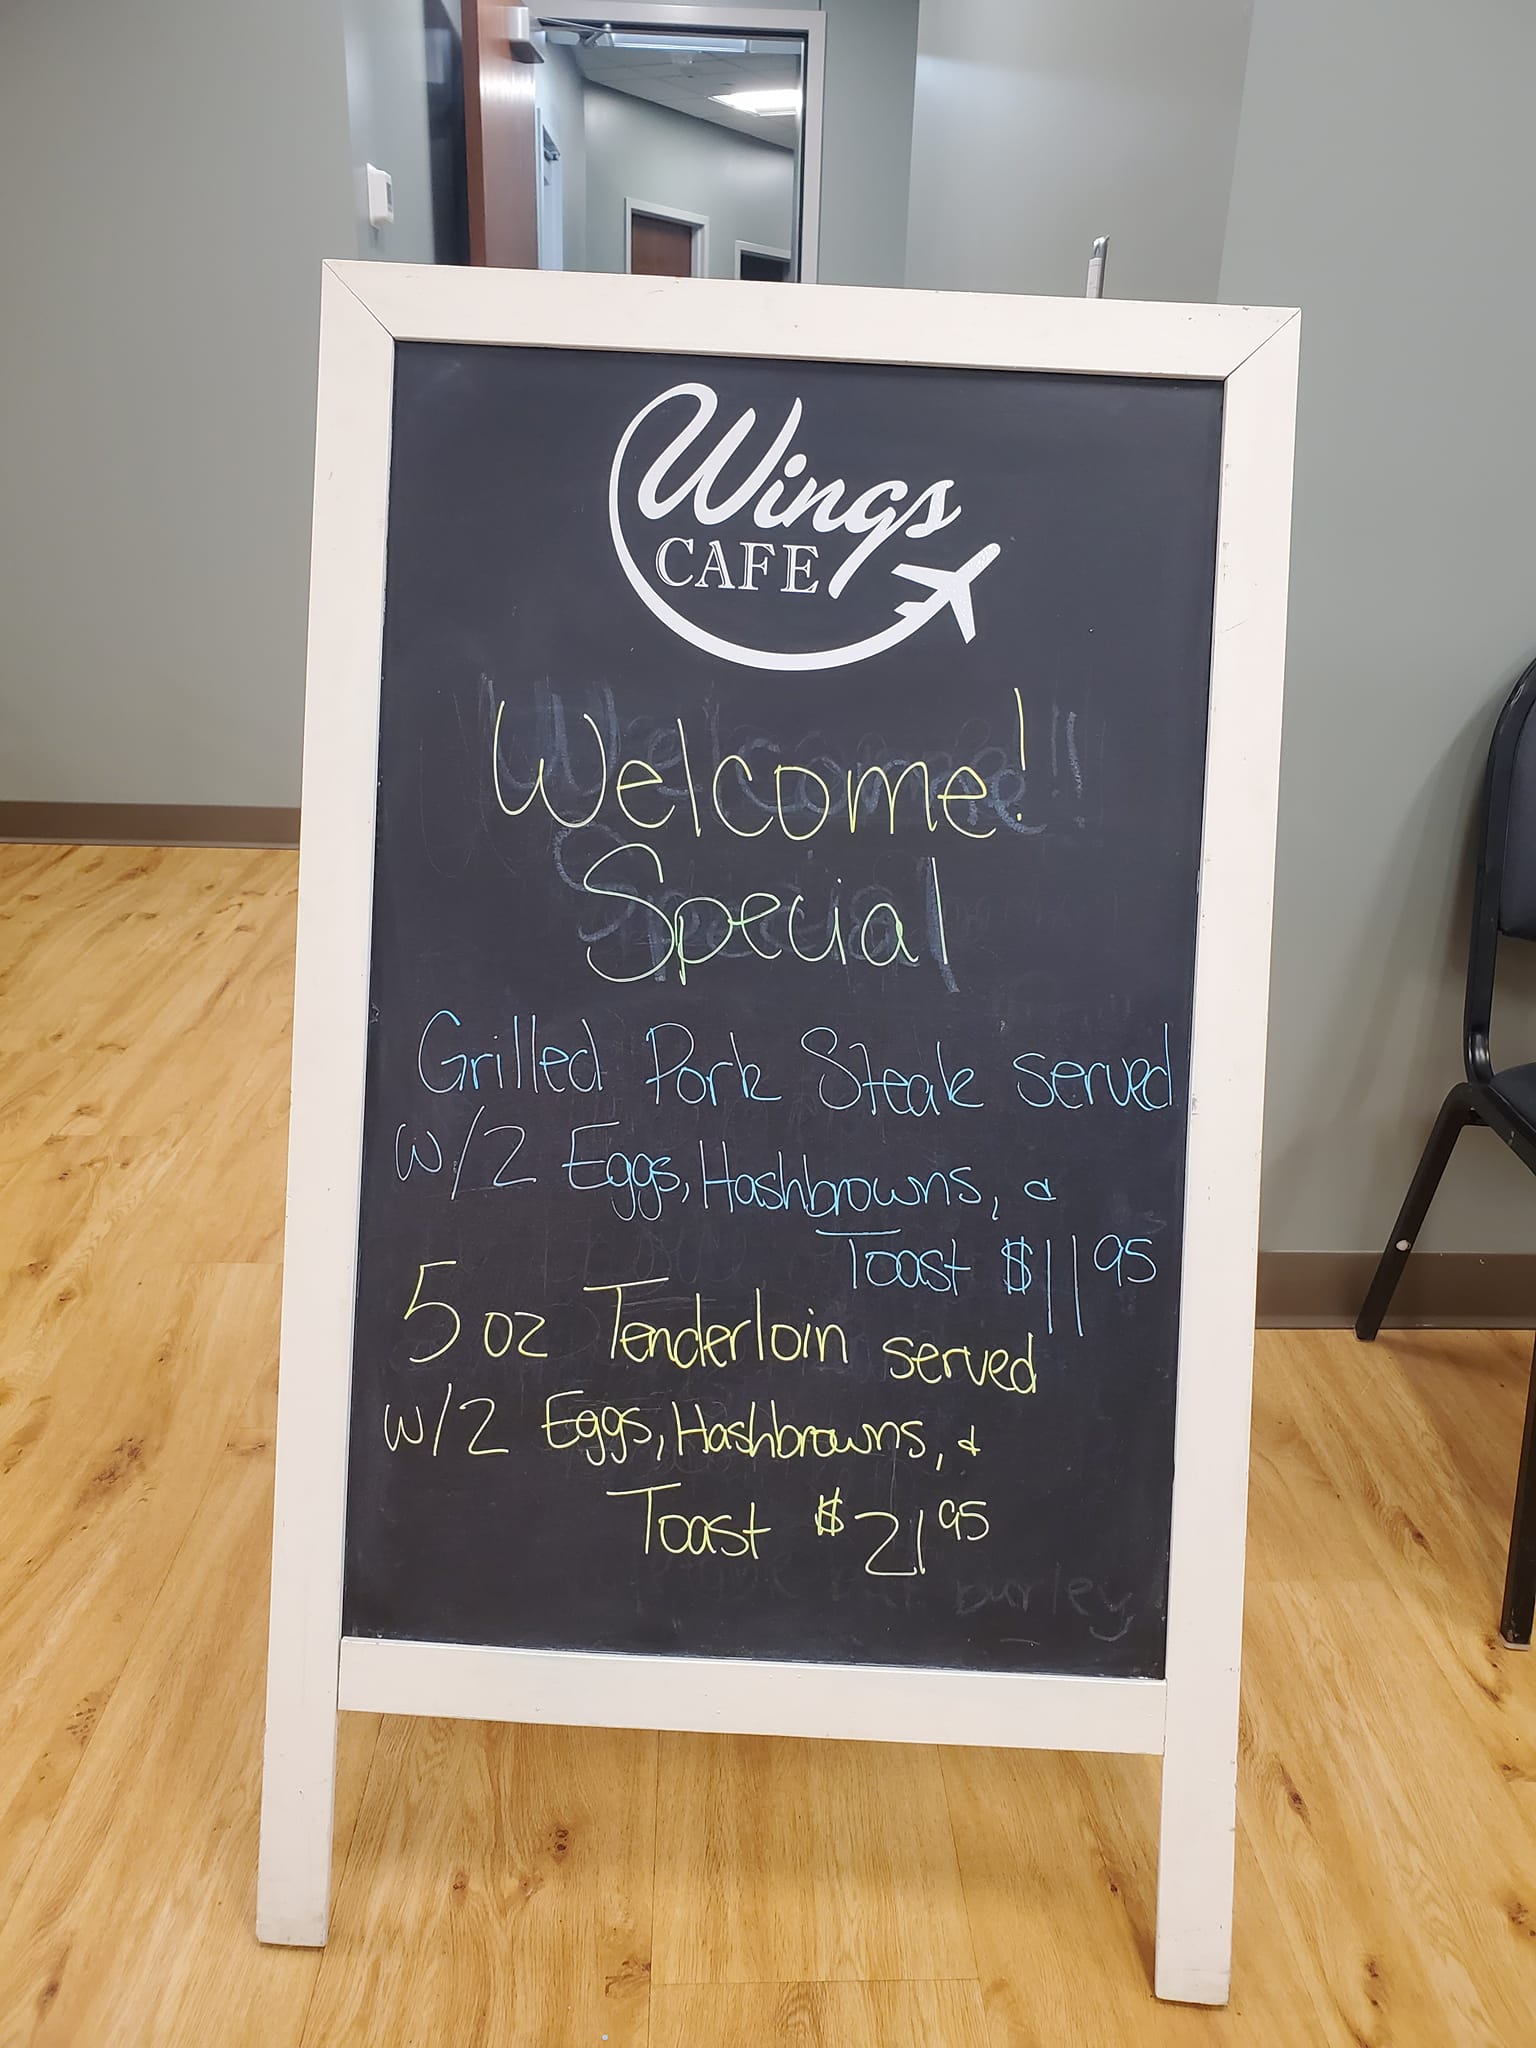 Wings
CAFE
Welcome!
Special
Grilled Pork Steak served
w/2 Eggs, Hashbrowns, &
Toast $11 95
5 oz Tenderloin served
w/2 Eggs, Hashbrowns, &
Toast $21 95